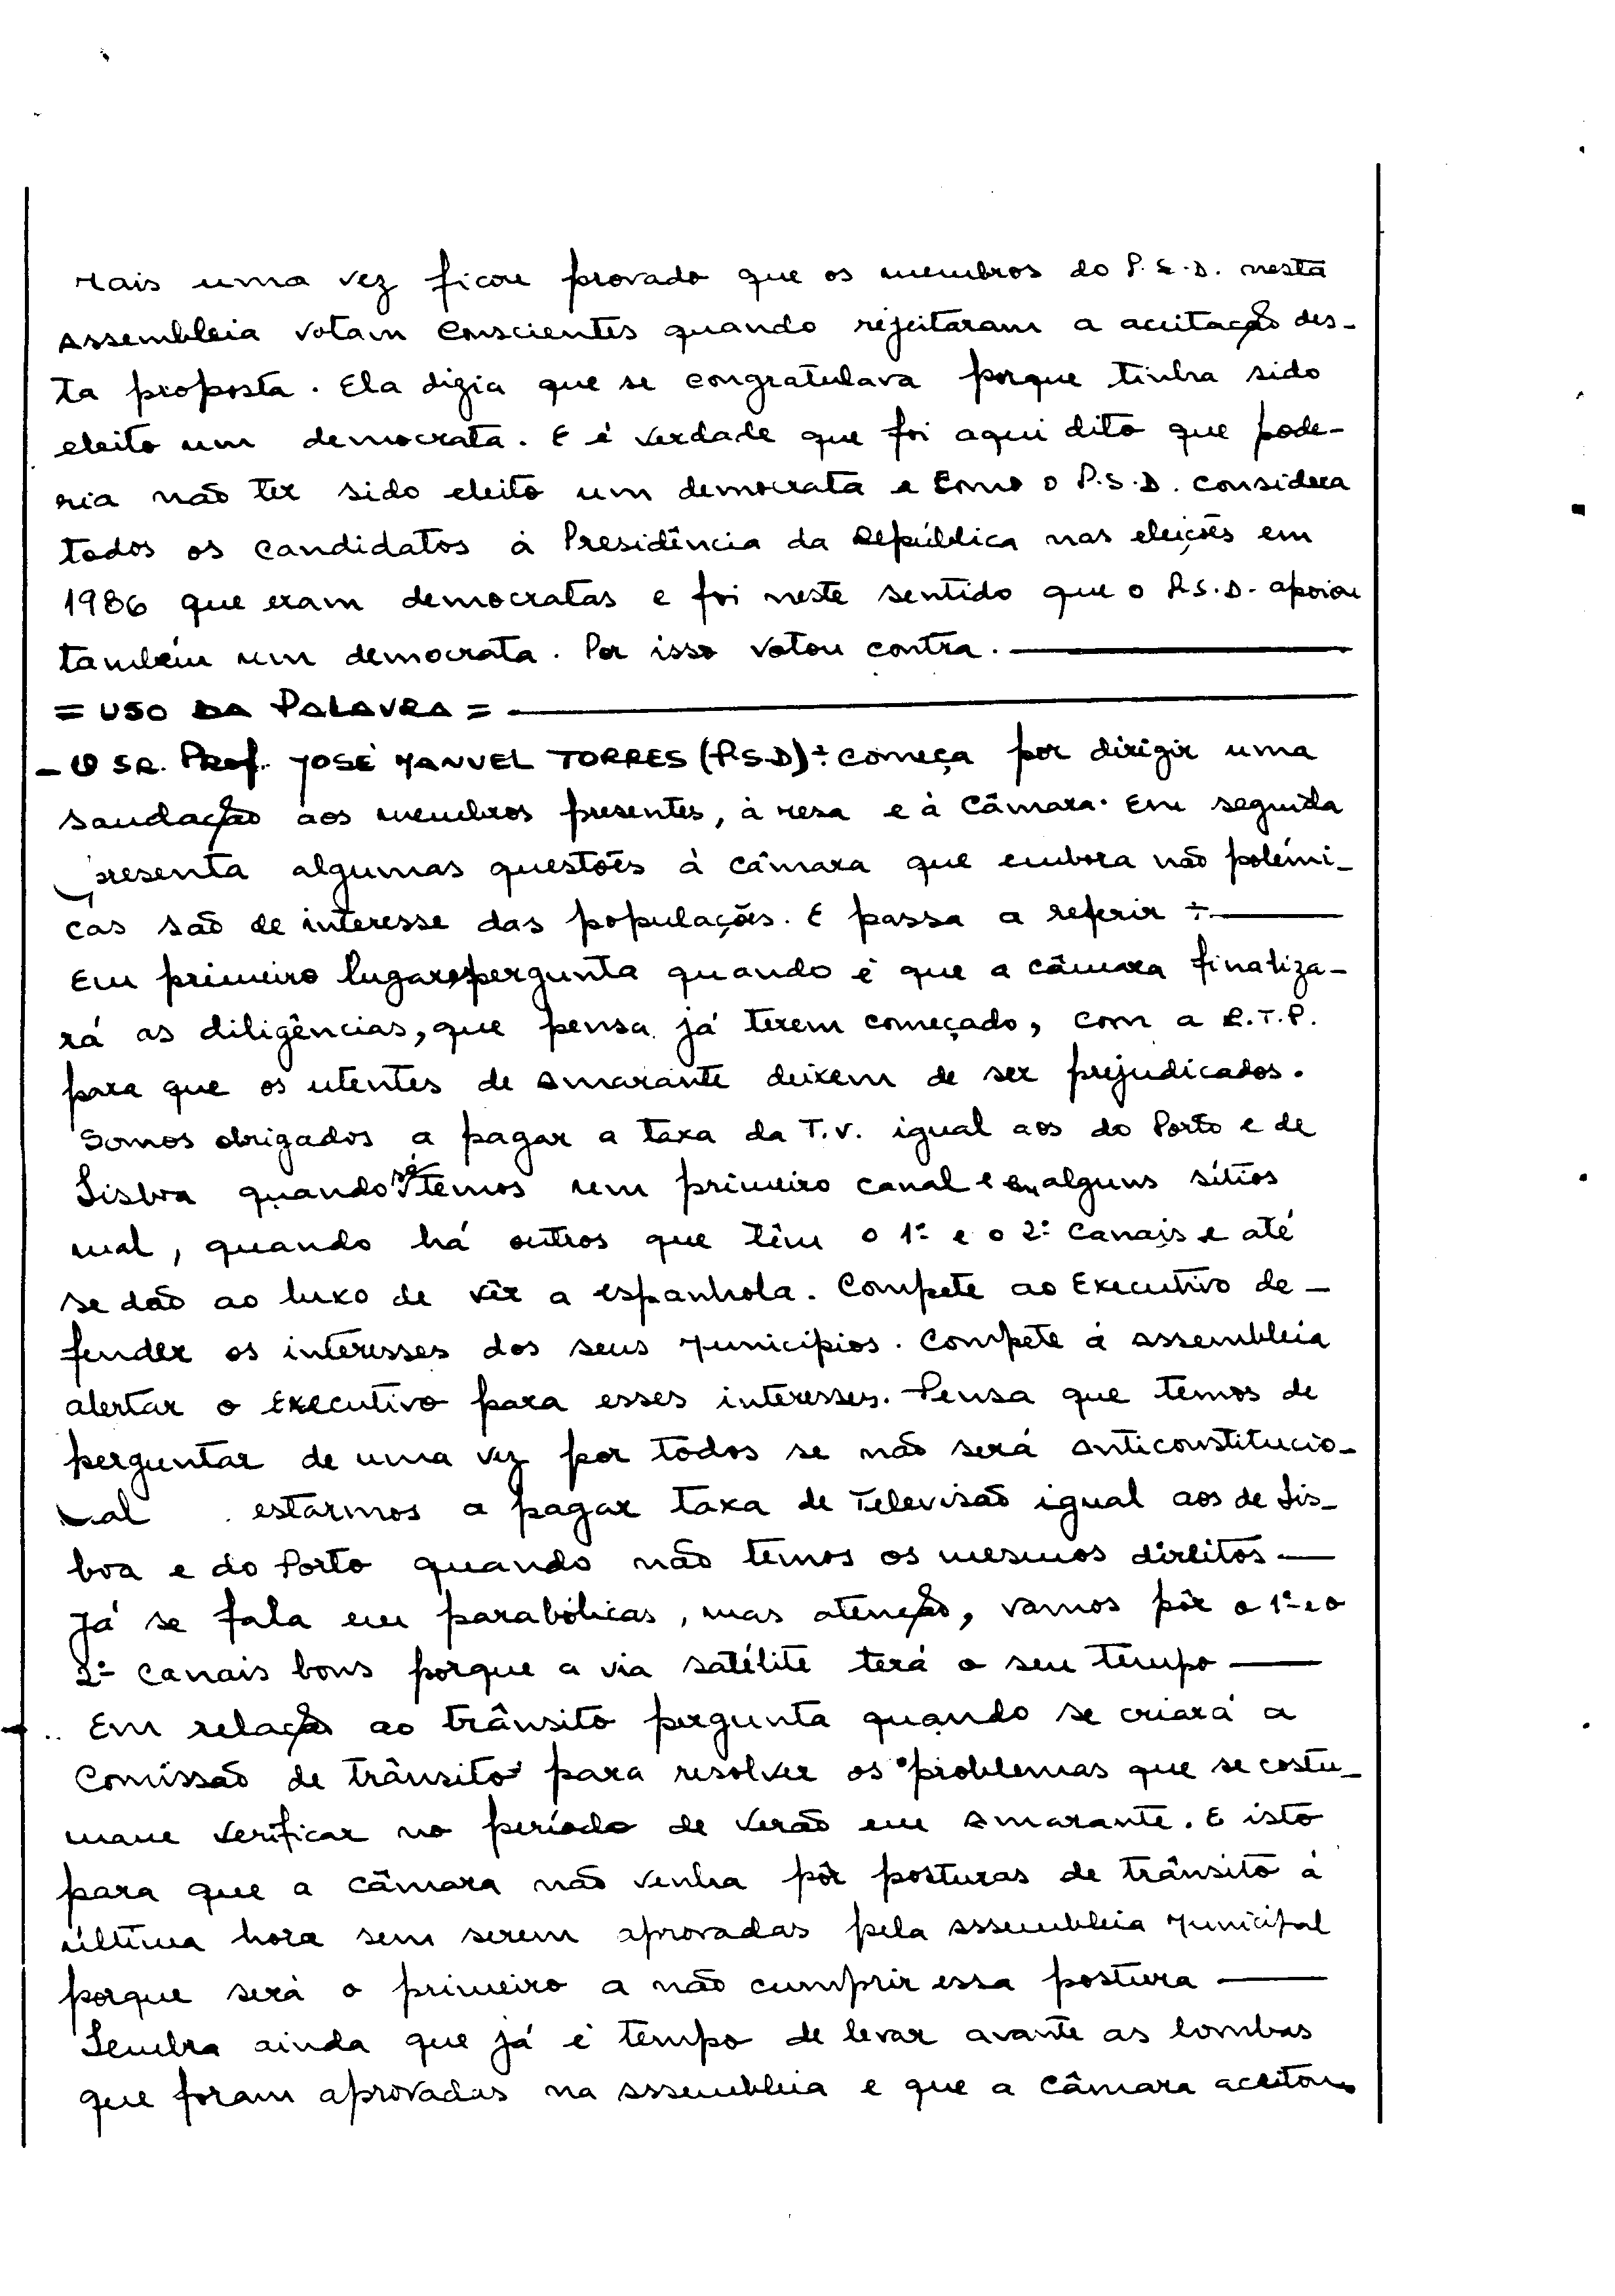 Mais uma vez ficou provado que os membros do P.S.D. nesta
Assembleia votam conscientes quando rejeitaram a aceitação des-
ta proposta. Ela dizia que se congratulava porque tinha sido
eleito um democrata. E é verdade que foi aqui dito que pode-
ria não ter sido eleito um democrata e como o P.S.D. considera
todos os candidatos à Presidência da República nas eleições em
1986 que eram democratas e foi neste sentido que o P.S.D. apoiou
também um democrata. Por isso votou contra.
= USO DA PALAVRA =
- O SR. Prof. JOSÉ MANUEL TORRES (P.S.D)÷ começa por dirigir uma
saudação aos membros presentes, à mesa e à Câmara. Em seguida
presenta algumas questões à câmara que embora não polémi-
cas são de interesse das populações. E passa a referir ÷
Em primeiro lugar, pergunta quando é que a câmara finaliza-
rá as diligências, que pensa já terem começado, com a R.T.P.
para que os utentes de Amarante deixem de ser prejudicados.
Somos obrigados a pagar a taxa da T.V. igual aos do Porto e de
Lisboa quando só temos um primeiro canal e em alguns sítios
mal, quando há outros que têm o 1º e o 2º canais e até
se dão ao luxo de vêr a espanhola. Compete ao Executivo de-
fender os interesses dos seus Municípios. Compete à Assembleia
alertar o Executivo para esses interesses. Pensa que temos de
perguntar de uma vez por todas se não será anticonstitucio-
nal estarmos a pagar taxa de Televisão igual aos de Lis-
boa e do Porto quando não temos os mesmos direitos
Já se fala em parabólicas, mas atenção, vamos pôr o 1º e o
2º canais bons porque a via satélite terá o seu tempo
Em relação ao trânsito pergunta quando se criará a
Comissão de trânsito para resolver os problemas que se costu-
mam verificar no período de Verão em Amarante. E isto
para que a câmara não venha pôr posturas de trânsito à
última hora sem serem aprovadas pela Assembleia Municipal
porque será o primeiro a não cumprir essa postura
Lembra ainda que já é tempo de levar avante as lombas
que foram aprovadas na Assembleia e que a câmara aceitou.